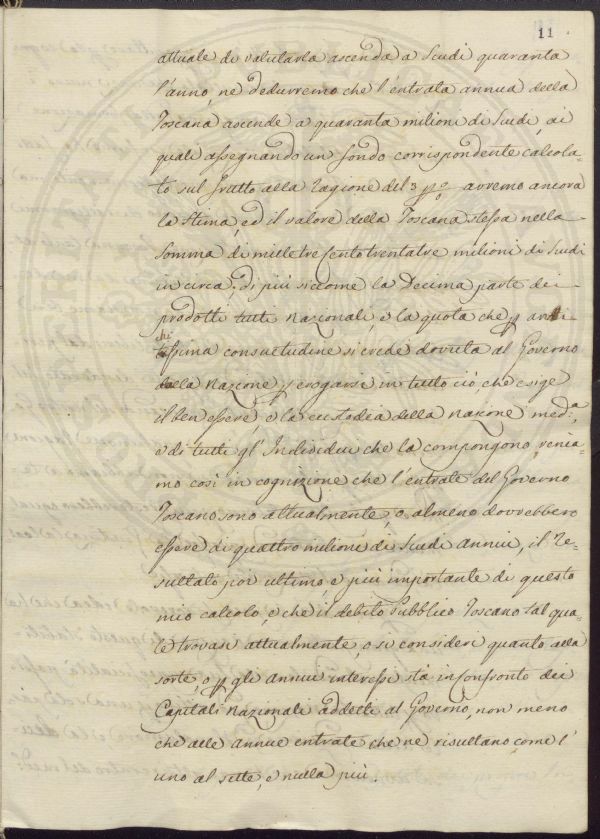 11
attuale di valutarla ascenda a Scudi quaranta
l'anno, ne dedurremo che l'entrata annua della
Toscana ascende a quaranta milioni di Scudi, ai
quali assegnando un fondo corrispondente calcola=
to sul frutto alla ragione del 3 p% avremo ancora
la Stima, ed il valore della Toscana stessa nella
somma di mille tre sento trentatre milioni di Scudi
in circa; di più siccome la Decima parte dei
prodotti tutti Nazionali, è la quota che p anti=
chissima consuetudine si crede dovuta al Governo
della Nazione p erogarsi in tutto ciò, che esige
il ben essere, e la custodia della Nazione med:ª,
e di tutti gl' Individui che la compongono, venia=
mo così in cognizione che l'entrate del Governo
Toscano sono attualmente, o almeno dovrebbero
essere di quattro milioni di Scudi annui, il Re=
sultato por ultimo, e più importante di questo
mio calcolo, è che il debito Pubblico Toscano tal qua=
le trovasi attualmente, o si consideri quanto alla
sorte, o p gli annui interessi sta in confronto dei
Capitali Nazionali addetti al Governo, non meno
che alle annue entrate che ne risultano, come l'
uno al sette, e nulla più.